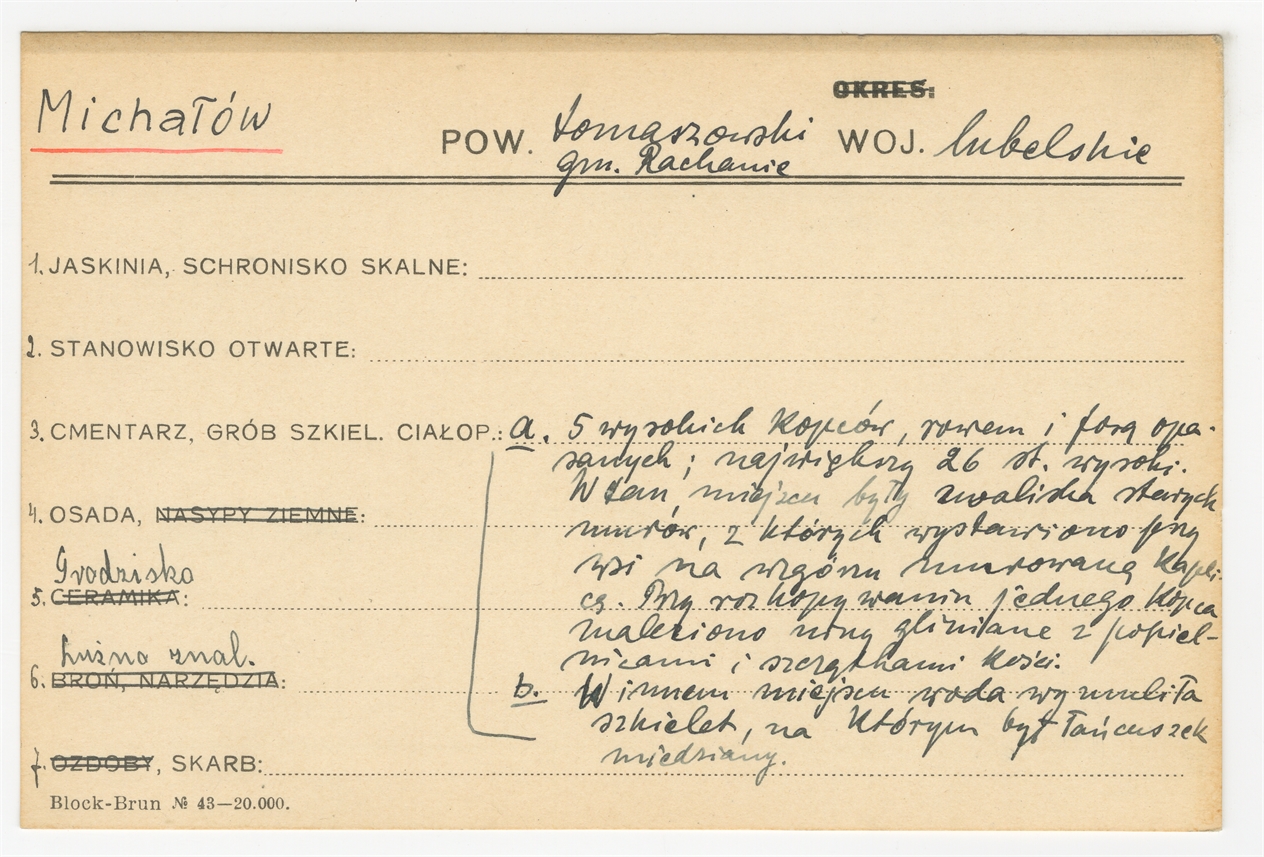 OKRES:
Michałów
POW. tomaszowski WOJ. lubelskie
gm. Rachanie
1. JASKINIA, SCHRONISKO SKALNE:
2. STANOWISKO OTWARTE:
3. CMENTARZ, GRÓB SZKIEL. CIAŁOP.: a. 5 wysokich kopców, rowem i fosą opa-
sanych; największy 26 st. wysoki.
W tem miejscu były zwaliska starych
4. OSADA, NASYPY ZIEMNE:
murów, z których wystawiono przy
Grodzisko
wsi na wzgórzu murowaną kapli-
5. CERAMIKA:
cę. Przy rozkopywaniu jednego kopca
znaleziono urny gliniane z popiel-
Luźno znal.
nicami i szczątkami kości.
6. BROŃ, NARZĘDZIA:
b. W innem miejscu woda wymuliła
szkielet, na którym był łańcuszek
miedziany.
7. OZDOBY, SKARB:
Block-Brun № 43—20.000.